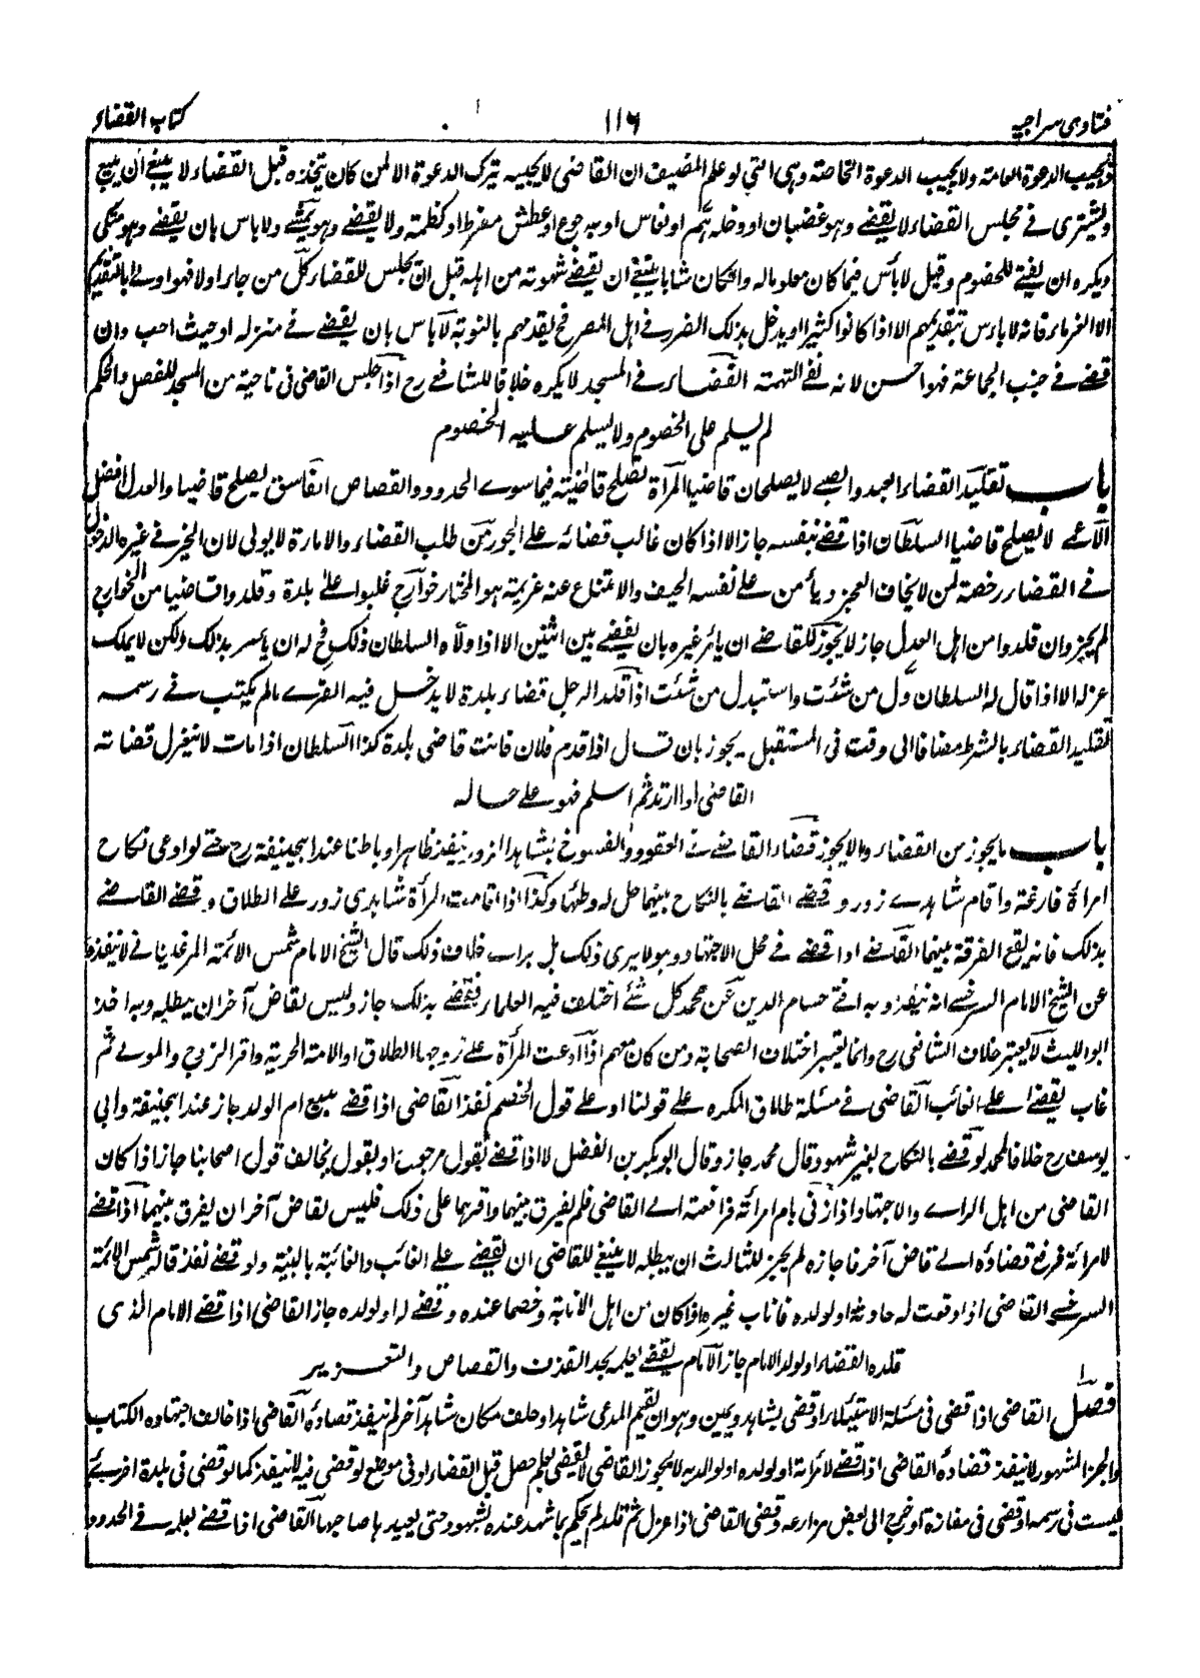 فتاوى سراجيه ١١٦ كتاب القضاء
ويجيب الدعوة العامة ولا يجيب الدعوة الخاصة وهى التي لو علم المضيف ان القاضى لا يجيبه يترك الدعوة الا لمن كان يتخذه قبل القضاء لا ينبغي ان يبيع
ويشترى في مجلس القضاء لا يقضي وهو غضبان او دخله هم او نعاس او به جوع او عطش مفرط او كظمة ولا يقضي وهو يمشي ولا باس بان يقضي وهو متكى
ويكره ان يفتي للخصوم وقيل لا بأس فيما كان معلوما له وان كان شابا ينبغي ان يقضي شهوته من اهله قبل ان يجلس للقضاء كل من جاء اولا فهو اولى بالتقديم
الا الغرماء فانه لا باس بتقديمهم الا اذا كانوا كثيرا ويدخل بذلك الضرر في اهل المصر فح يقدمهم بالنوبة لا باس بان يقضي في منزله او حيث احب وان
قضي في جنب الجماعة فهو احسن لانه نفي التهمة القضاء في المسجد لا يكره خلافا للشافعي رح اذا جلس القاضى فى ناحية من المسجد للفصل والحكم
لم يسلم على الخصوم ولا يسلم عليه الخصوم
باب تقليد القضاء العبد والصبي لا يصلحان قاضيا المرأة تصلح قاضية فيما سوى الحدود والقصاص الفاسق يصلح قاضيا والعدل افضل
الاعمى لا يصلح قاضيا السلطان اذا قضي بنفسه جاز الا اذا كان غالب قضائه على الجور من طلب القضاء والامارة لا يولى لان الخير في غيره الدخول
في القضاء رخصة لمن لا يخاف العجز ويأمن على نفسه الحيف والامتناع عنه عزيمة هو المختار خوارج غلبوا على بلدة وقلدوا قاضيا من الخوارج
لم يجز وان قلدوا من اهل العدل جاز لا يجوز للقاضي ان يامر غيره بان يقضي بين اثنين الا اذا ولاه السلطان ذلك فح له ان يامر بذلك ولكن لا يملك
عزله الا اذا قال له السلطان ول من شئت واستبدل من شئت اذا قلد الرجل قضاء بلدة لا يدخل فيه القرى مالم يكتب في رسمه
تقليد القضاء بالشرط مضافا الى وقت فى المستقبل يجوز بان قال اذا قدم فلان فانت قاضى بلدة كذا السلطان اذا مات لا ينعزل قضاته
القاضى اذا ارتد ثم اسلم فهو على حاله
باب ما يجوز من القضاء وما لا يجوز قضاء القاضي في العقود والفسوخ بشاهدا الزور ينفذ ظاهرا وباطنا عند ابيحنيفة رح حتى لو ادعى نكاح
امرأة فارغة واقام شاهدى زور وقضي القاضي بالنكاح بينهما حل له وطئها وكذا اذا قامت المرأة شاهدى زور على الطلاق وقضي القاضي
بذلك فانه يقع الفرقة بينهما القاضي اذا قضي في محل الاجتهاد وهو لا يرى ذلك بل براى خلاف ذلك قال الشيخ الامام شمس الائمة المرغينانى لا ينفذ و
عن الشيخ الامام السرخسي انه ينفذ وبه افتى حسام الدين عن محمد كل شئ اختلف فيه العلماء فقضي بذلك جاز وليس لقاض آخر ان يبطله وبه اخذ
ابو الليث لا يعتبر خلاف الشافعى رح وانما يعتبر اختلاف الصحابة ومن كان معهم اذا ادعت المرأة على زوجها الطلاق او الامة الحرية واقر الزوج والمولى ثم
غاب يقضي على الغائب القاضى في مسئلة طلاق المكره على قولنا او على قول الخصم نفذ القاضى اذا قضي ببيع ام الولد جاز عند ابيحنيفة وابى
يوسف رح خلافا لمحمد لو قضي بالنكاح بغير شهود قال محمد جاز وقال ابو بكر بن الفضل لا اذا قضي بقول مرجوع او بقول يخالف قول اصحابنا جاز اذا كان
القاضى من اهل الراى والاجتهاد اذا زنى بام امرأته فرافعته الى القاضى فلم يفرق بينهما واقرهما على ذلك فليس لقاض آخر ان يفرق بينهما اذا قضي
لامرأته فرفع قضاؤه الى قاض آخر فاجازه لم يجز للثالث ان يبطله لا ينبغي للقاضى ان يقضي على الغائب والغائبة بالبينة ولو قضي نفذ قاله شمس الائمة
السرخسي القاضى اذا وقعت له حادثة او لولده فاناب غيره اذا كان من اهل الانابة وخصما عنده وقضي له او لولده جاز القاضى اذا قضي للامام الذى
قلده القضاء او لولد الامام جاز الامام يقضي بعلمه بحد القذف والقصاص والتعزير
فصل القاضى اذا قضى فى مسئلة الاستيلاء او قضى بشاهد ويمين وهو ان يقيم المدعى شاهدا وحلف مكان شاهد آخر لم ينفذ قضاؤه القاضى اذا خالف اجتهاده الكتاب
والخبر المشهور لا ينفذ قضاؤه القاضى اذا قضي لامرأته او لولده او لوالديه لا يجوز القاضى لا يقضى بعلم حصل قبل القضاء او فى موضع لو قضى فيه لا ينفذ كما لو قضى فى بلدة اخرى
ليست فى رسمه او قضى فى مفازة او خرج الى بعض مزارعه وقضى القاضى اذا عزل ثم قلد لم يحكم بما شهد عنده لشهود حتى يعيدها صاحبها القاضى اذا قضي بعلمه في الحدود